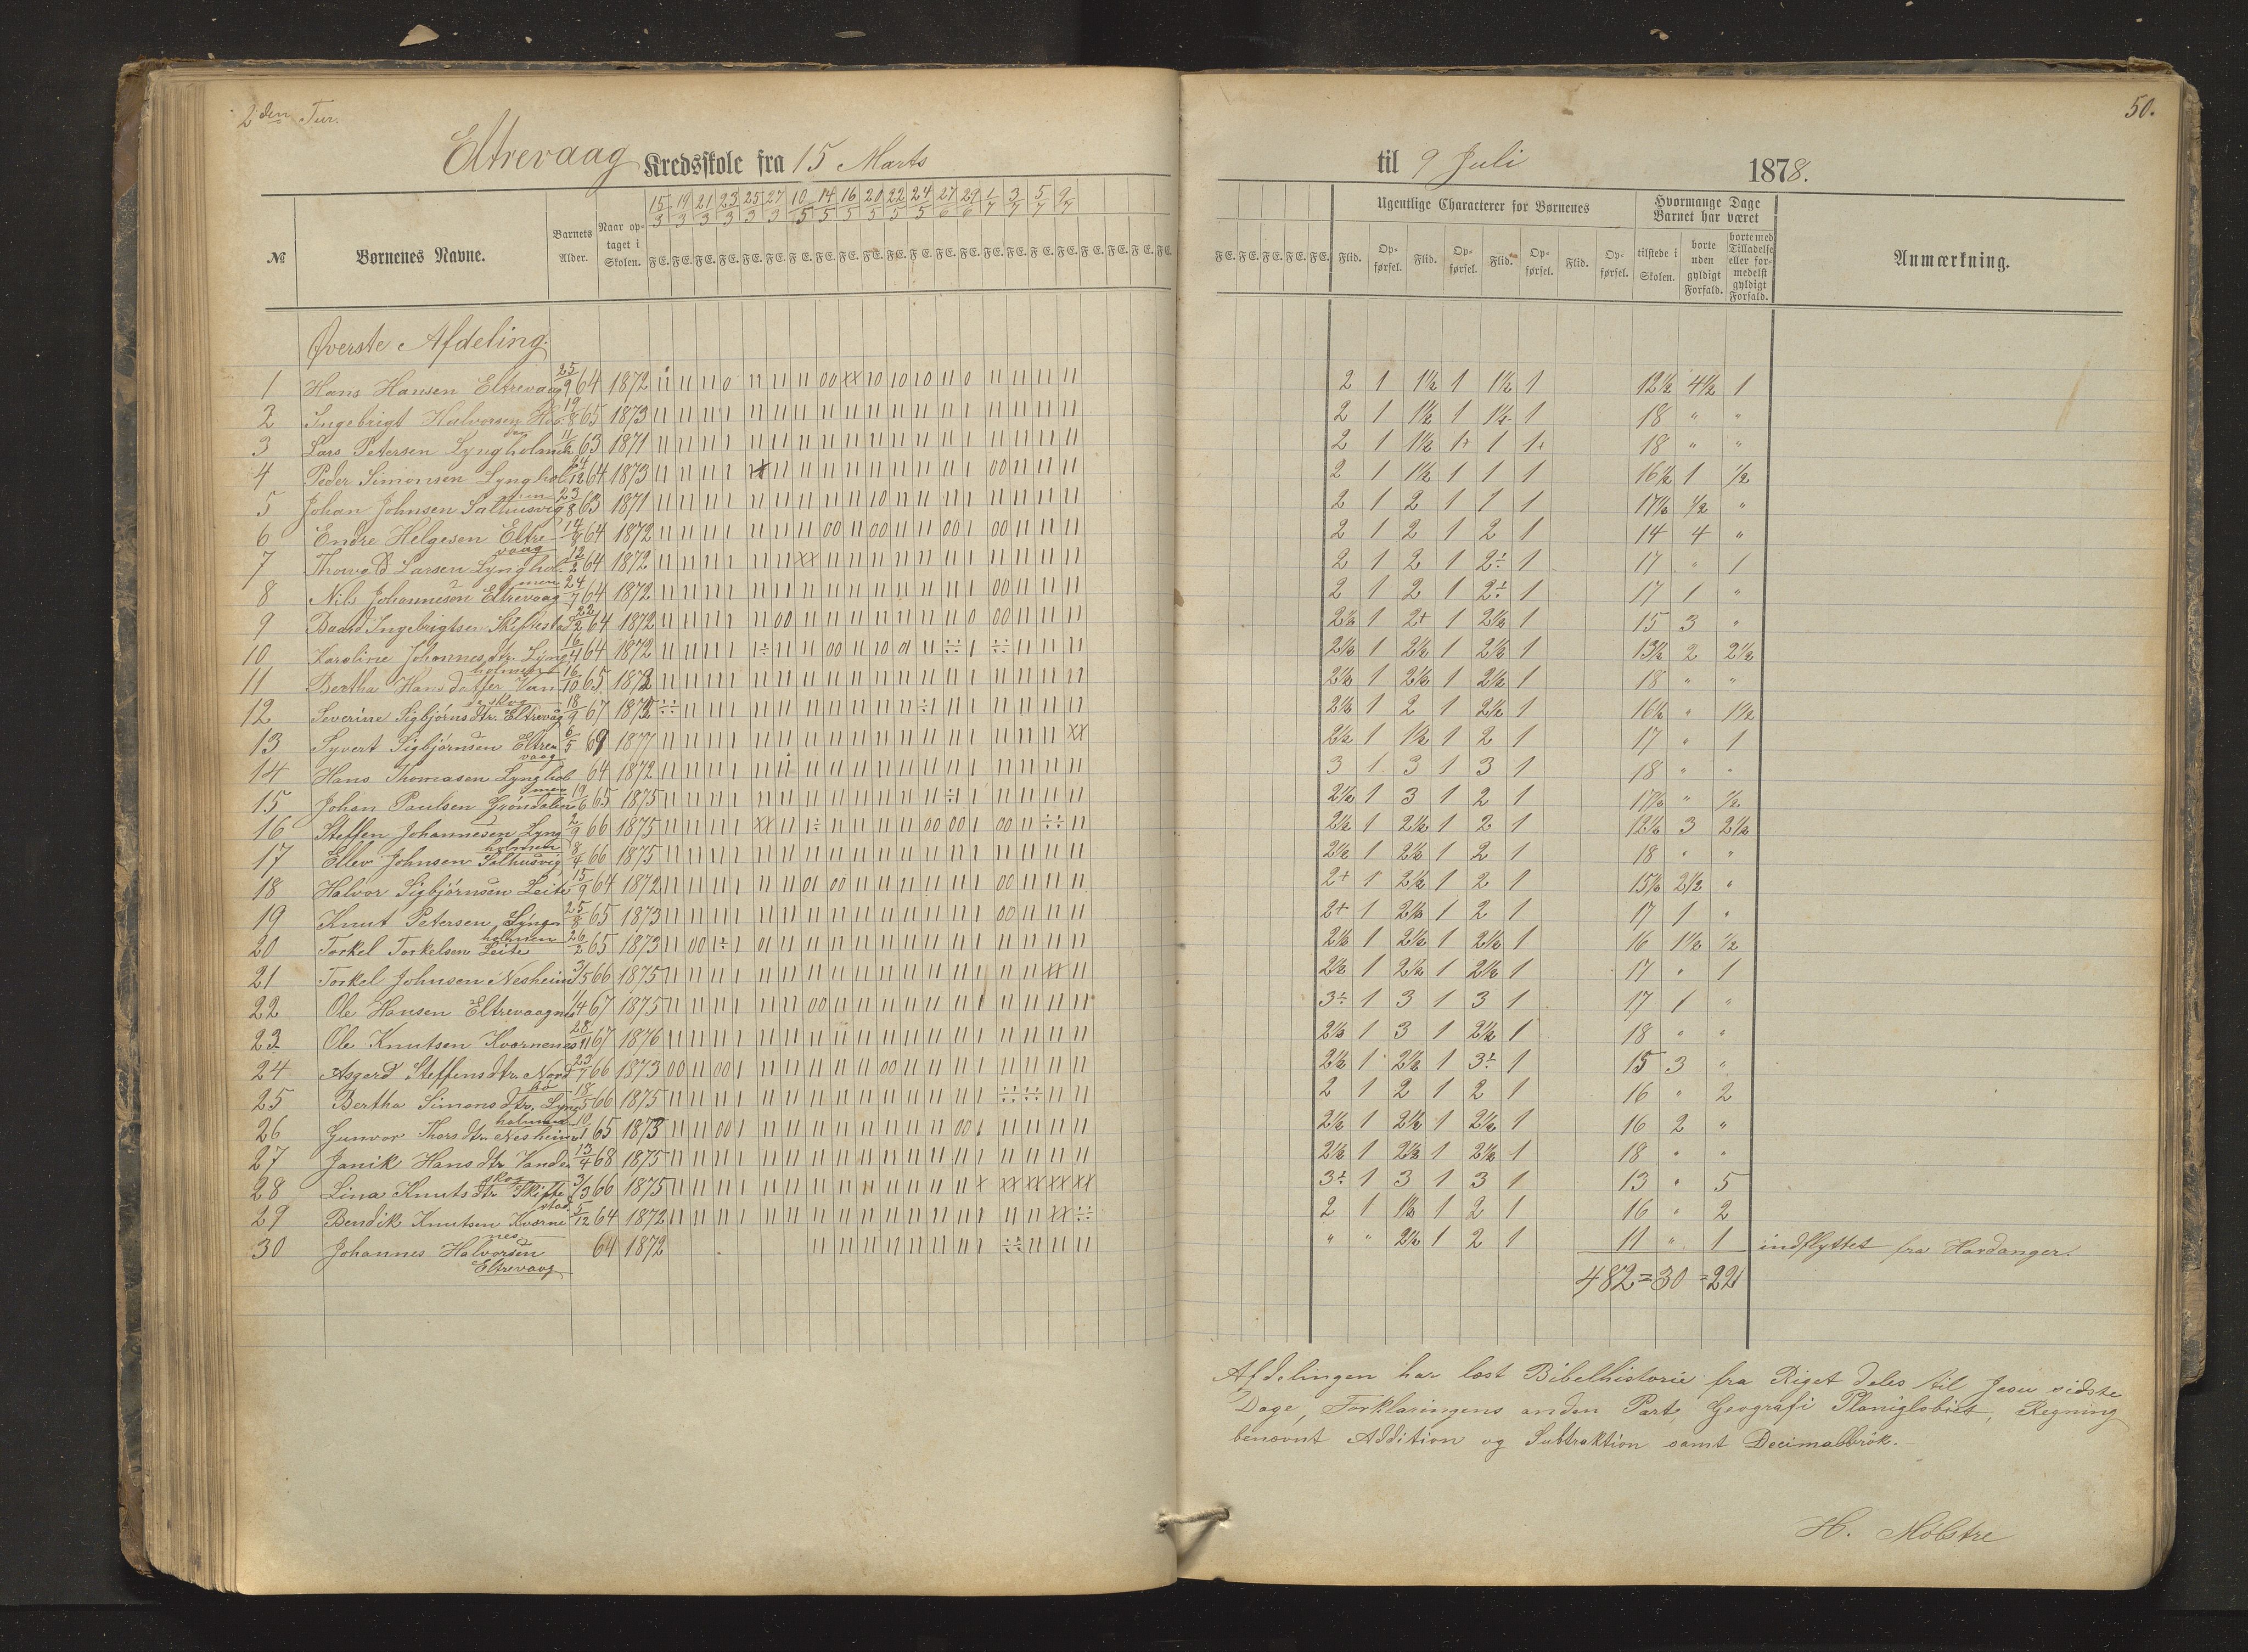 2den Tur.
50.
Eltrevaag Kredsskole fra 15 Marts til 9 Juli 1878.
№ Børnenes Navne. Barnets Alder. Naar optaget i Skolen. 15/3 19/3 21/3 23/3 25/3 27/3 10/5 14/5 16/5 20/5 22/5 24/5 27/6 29/6 1/7 3/7 5/7 9/7
Ugentlige Characterer for Børnenes Flid. Opførsel. Flid. Opførsel. Flid. Opførsel. Flid. Opførsel.
Hvormange Dage Barnet har været tilstede i Skolen. borte uden gyldigt Forfald. borte med Tilladelse eller formedelst gyldigt Forfald.
Anmærkning.
Øverste Afdeling.
1 Hans Hansen Eltrevaag 25/9 64 1872 2 1 1½ 1 1½ 1 12½ 4½ 1
2 Ingebrigt Halvorsen 19/8 65 1873 2 1 1½ 1 1½ 1 18 " "
3 Lars Petersen Lyngholmen 63 1871 2 1 1½ 1+ 1 1+ 18 " "
4 Peder Simonsen Lyngholmen 24/12 64 1873 2 1 1½ 1 1 1 16½ 1 ½
5 Johan Johnsen Salthusvig 23/8 63 1871 2 1 2 1 1 1 17½ ½ "
6 Endre Helgesen Eltrevaag 14/8 64 1872 2 1 2 1 2 1 14 4 "
7 Larsen Lyngholmen 12/2 64 1872 2 1 2 1 2÷ 1 17 " 1
8 Nils Johannesen Eltrevaag 24/7 64 1872 2 1 2 1 2÷ 1 17 1 "
9 Baard Ingebrigtsen Skiftestad 22/2 64 1872 2½ 1 2+ 1 2½ 1 15 3 "
10 Karoline Johannesdtr. Lyngholmen 16/4 64 1872 2½ 1 2½ 1 2½ 1 13½ 2 2½
11 Bertha Hansdatter Vandeskog 16/10 65 1872 2½ 1 2½ 1 2½ 1 18 " "
12 Severine Sigbjørnsdtr. Eltrevåg 18/9 67 1872 2½ 1 2 1 2½ 1 16½ " 1½
13 Syvert Sigbjørnsen Eltrevaag 6/5 69 1877 2½ 1 1½ 1 2 1 17 " 1
14 Hans Thomasen Lyngholmen 64 1872 3 1 3 1 3 1 18 " "
15 Johan Paulsen Grøndalen 19/6 65 1875 2½ 1 3 1 2 1 17½ " ½
16 Steffen Johannesen Lyngholmen 2/9 66 1875 2½ 1 2½ 1 2 1 12½ 3 2½
17 Ellev Johnsen Salthusvig 8/4 66 1875 2½ 1 2½ 1 2 1 18 " "
18 Halvor Sigbjørnsen Leite 15/9 64 1872 2+ 1 2½ 1 2 1 15½ 2½ "
19 Knut Petersen Lyngholmen 25/8 65 1873 2+ 1 2½ 1 2 1 17 1 "
20 Torkel Torkelsen Leite 26/2 65 1873 2½ 1 2½ 1 2½ 1 16 1½ ½
21 Torkel Johnsen Nesheim 3/5 66 1875 2½ 1 2½ 1 2½ 1 17 " 1
22 Ole Hansen Eltrevaagnes 1/4 67 1875 3÷ 1 3 1 3 1 17 1 "
23 Ole Knutsen Kvernenes 28/11 67 1876 2½ 1 3 1 2½ 1 18 " "
24 Asgerd Steffensdtr. Nordbø 23/7 66 1873 2½ 1 2½ 1 3÷ 1 15 3 "
25 Bertha Simonsdtr. Lyngholmen 18/5 66 1875 2 1 2 1 2 1 16 " 2
26 Gunvor Thorsdtr. Nesheim 10/1 65 1873 2½ 1 2½ 1 2½ 1 16 2 "
27 Janik Hansdtr Vandeskog 13/4 68 1875 2½ 1 2½ 1 2½ 1 18 " "
28 Lina Knutsdtr Skiftestad 3/3 66 1875 3÷ 1 3 1 3 1 13 " 5
29 Bendik Knutsen Kvernenes 5/12 64 1872 2 1 1½ 1 2 1 16 " 2
30 Johannes Halvorsen Eltrevaag 64 1872 " " 2½ 1 2 1 11 " 1 indflyttet fra Hardanger.
482 = 30 = 22
Afdelingen har læst Bibelhistorie fra Riget deles til Jesu sidste
Dage, Forklaringens anden Part, Geografi Planiglobiet, Regning
benævnt Addition og Subtraktion samt Decimalbrøk.
H. Mölstre